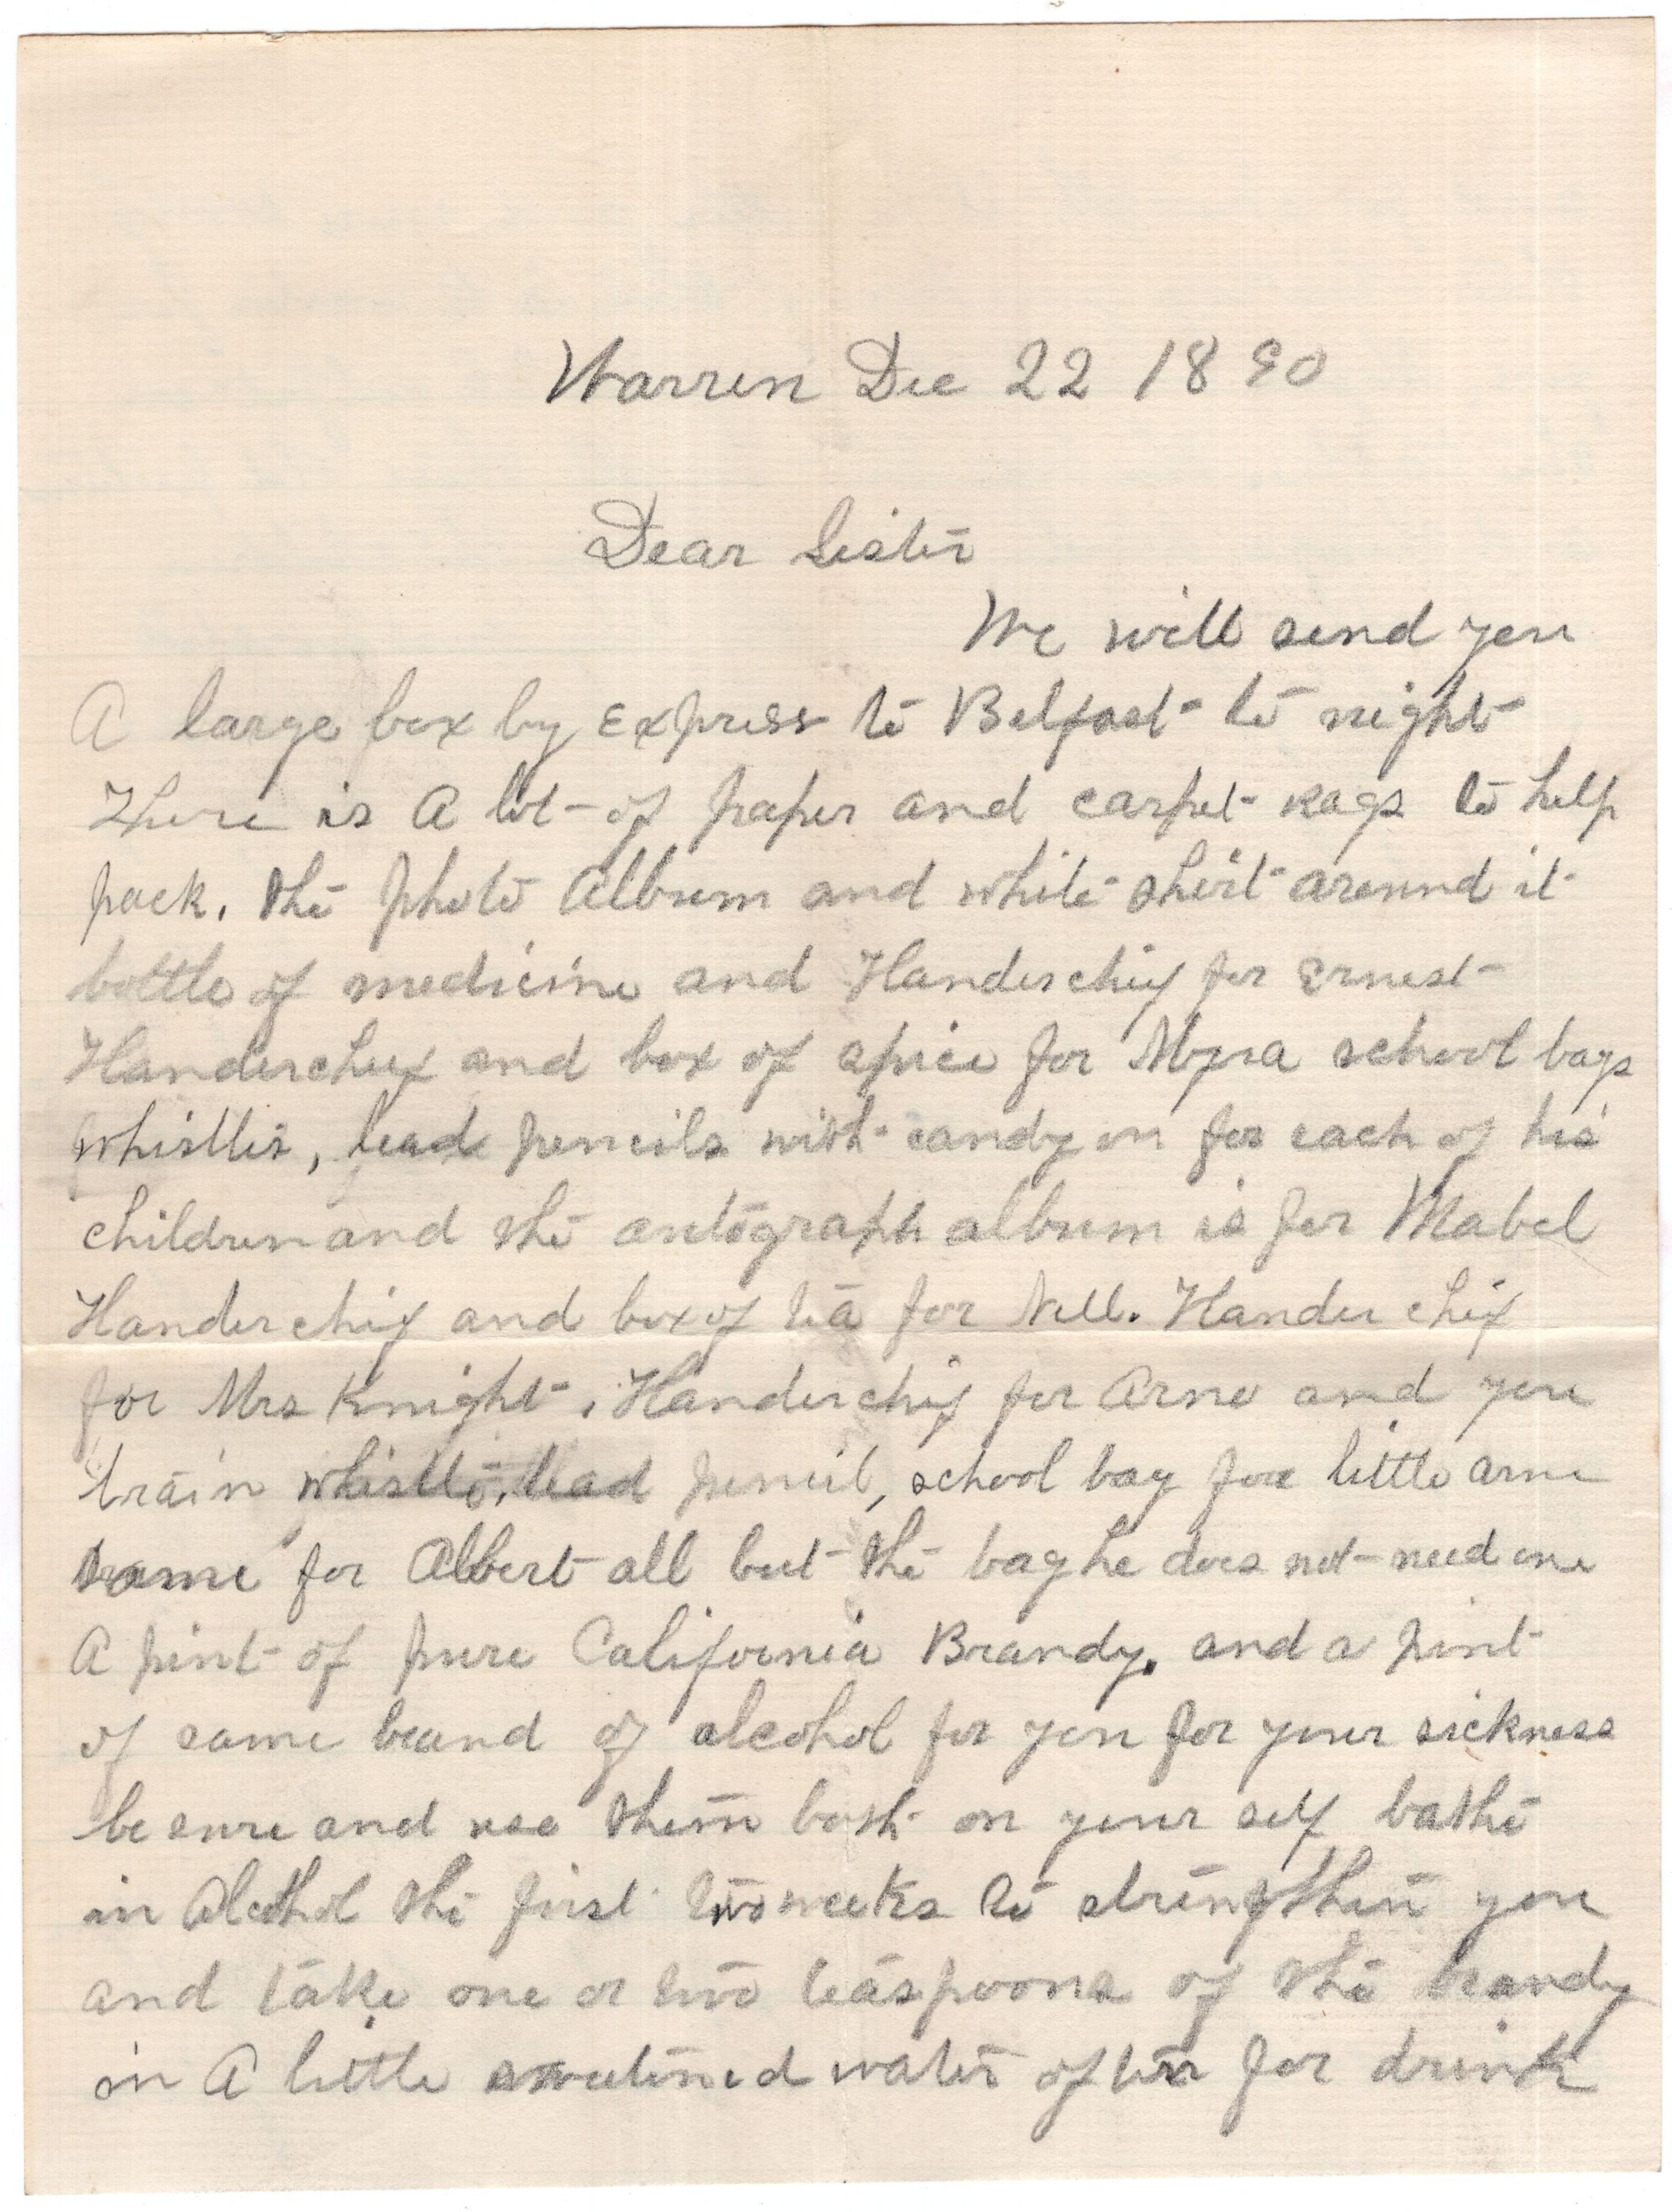 Warren Dec 22 1890
Dear Sister
We will send you
A large box by Express to Belfast to night
There is A lot of paper and carpet rags to help
pack. the photo Album and white shirt around it
bottle of medicine and Handerchif for Ernest
Handercheif and box of spice for Myra school bags
whistles, lead pencils with candy in for each of his
children and the autograph album is for Mabel
Handerchif and box of tea for Nell. Handerchif
for Mrs Knight. Handerchif for Arno and you
train whistle, lead pencil, school bag for little arno
same for Albert all but the bag he does not need one
A pint of pure California Brandy. and a pint
of same brand of alcohol for you for your sickness
be sure and use them both on your self bathe
in Alcohol the first two weeks to stringthen you
and take one or two teaspoons of the brandy
in A little sweetened water often for drink